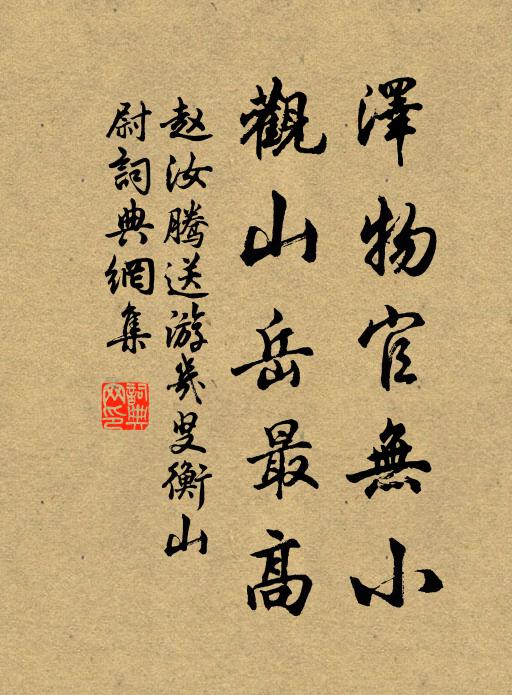 澤物官無小
觀山岳最高
赵汝腾送游幾叟衡山
尉詞典網集
詞典
网印